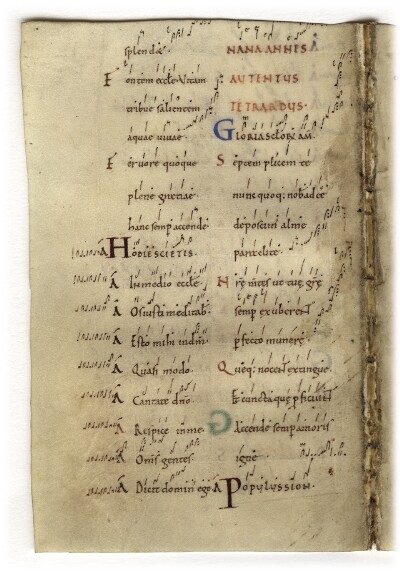 splendae.
Fontem eccle. vitam
tribue salientem
aquae vivae.
Fervore quoque
plene gratiae
hanc semp accende.
HODIE SCIETIS.
A In medio eccle.
A Os iusti meditab.
A Esto mihi in dm.
A Quasi modo.
A Cantate dno
A Respice in me.
A Oms gentes.
A Dicit domin ego
NANA ANNES
AUTENTUS
TETRARDUS.
GLORIAS GLORIAM.
Septem plicem te
nunc quoq; nobis ad ee
deposcim alme
paraclite.
semp exuberent
pfecto munere.
Queq; nocent extingue
Et cuncta que pficiunt
Accende semp amoris
igne.
A POPULUS SION.